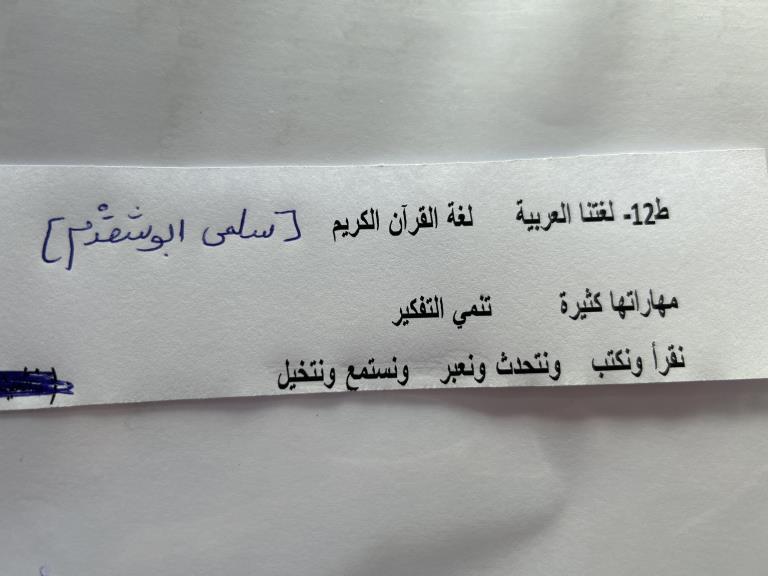 ط12- لغتنا العربية لغة القرآن الكريم [سلمى ابوشقدم]
مهاراتها كثيرة تنمي التفكير
نقرأ ونكتب ونتحدث ونعبر ونستمع ونتخيل